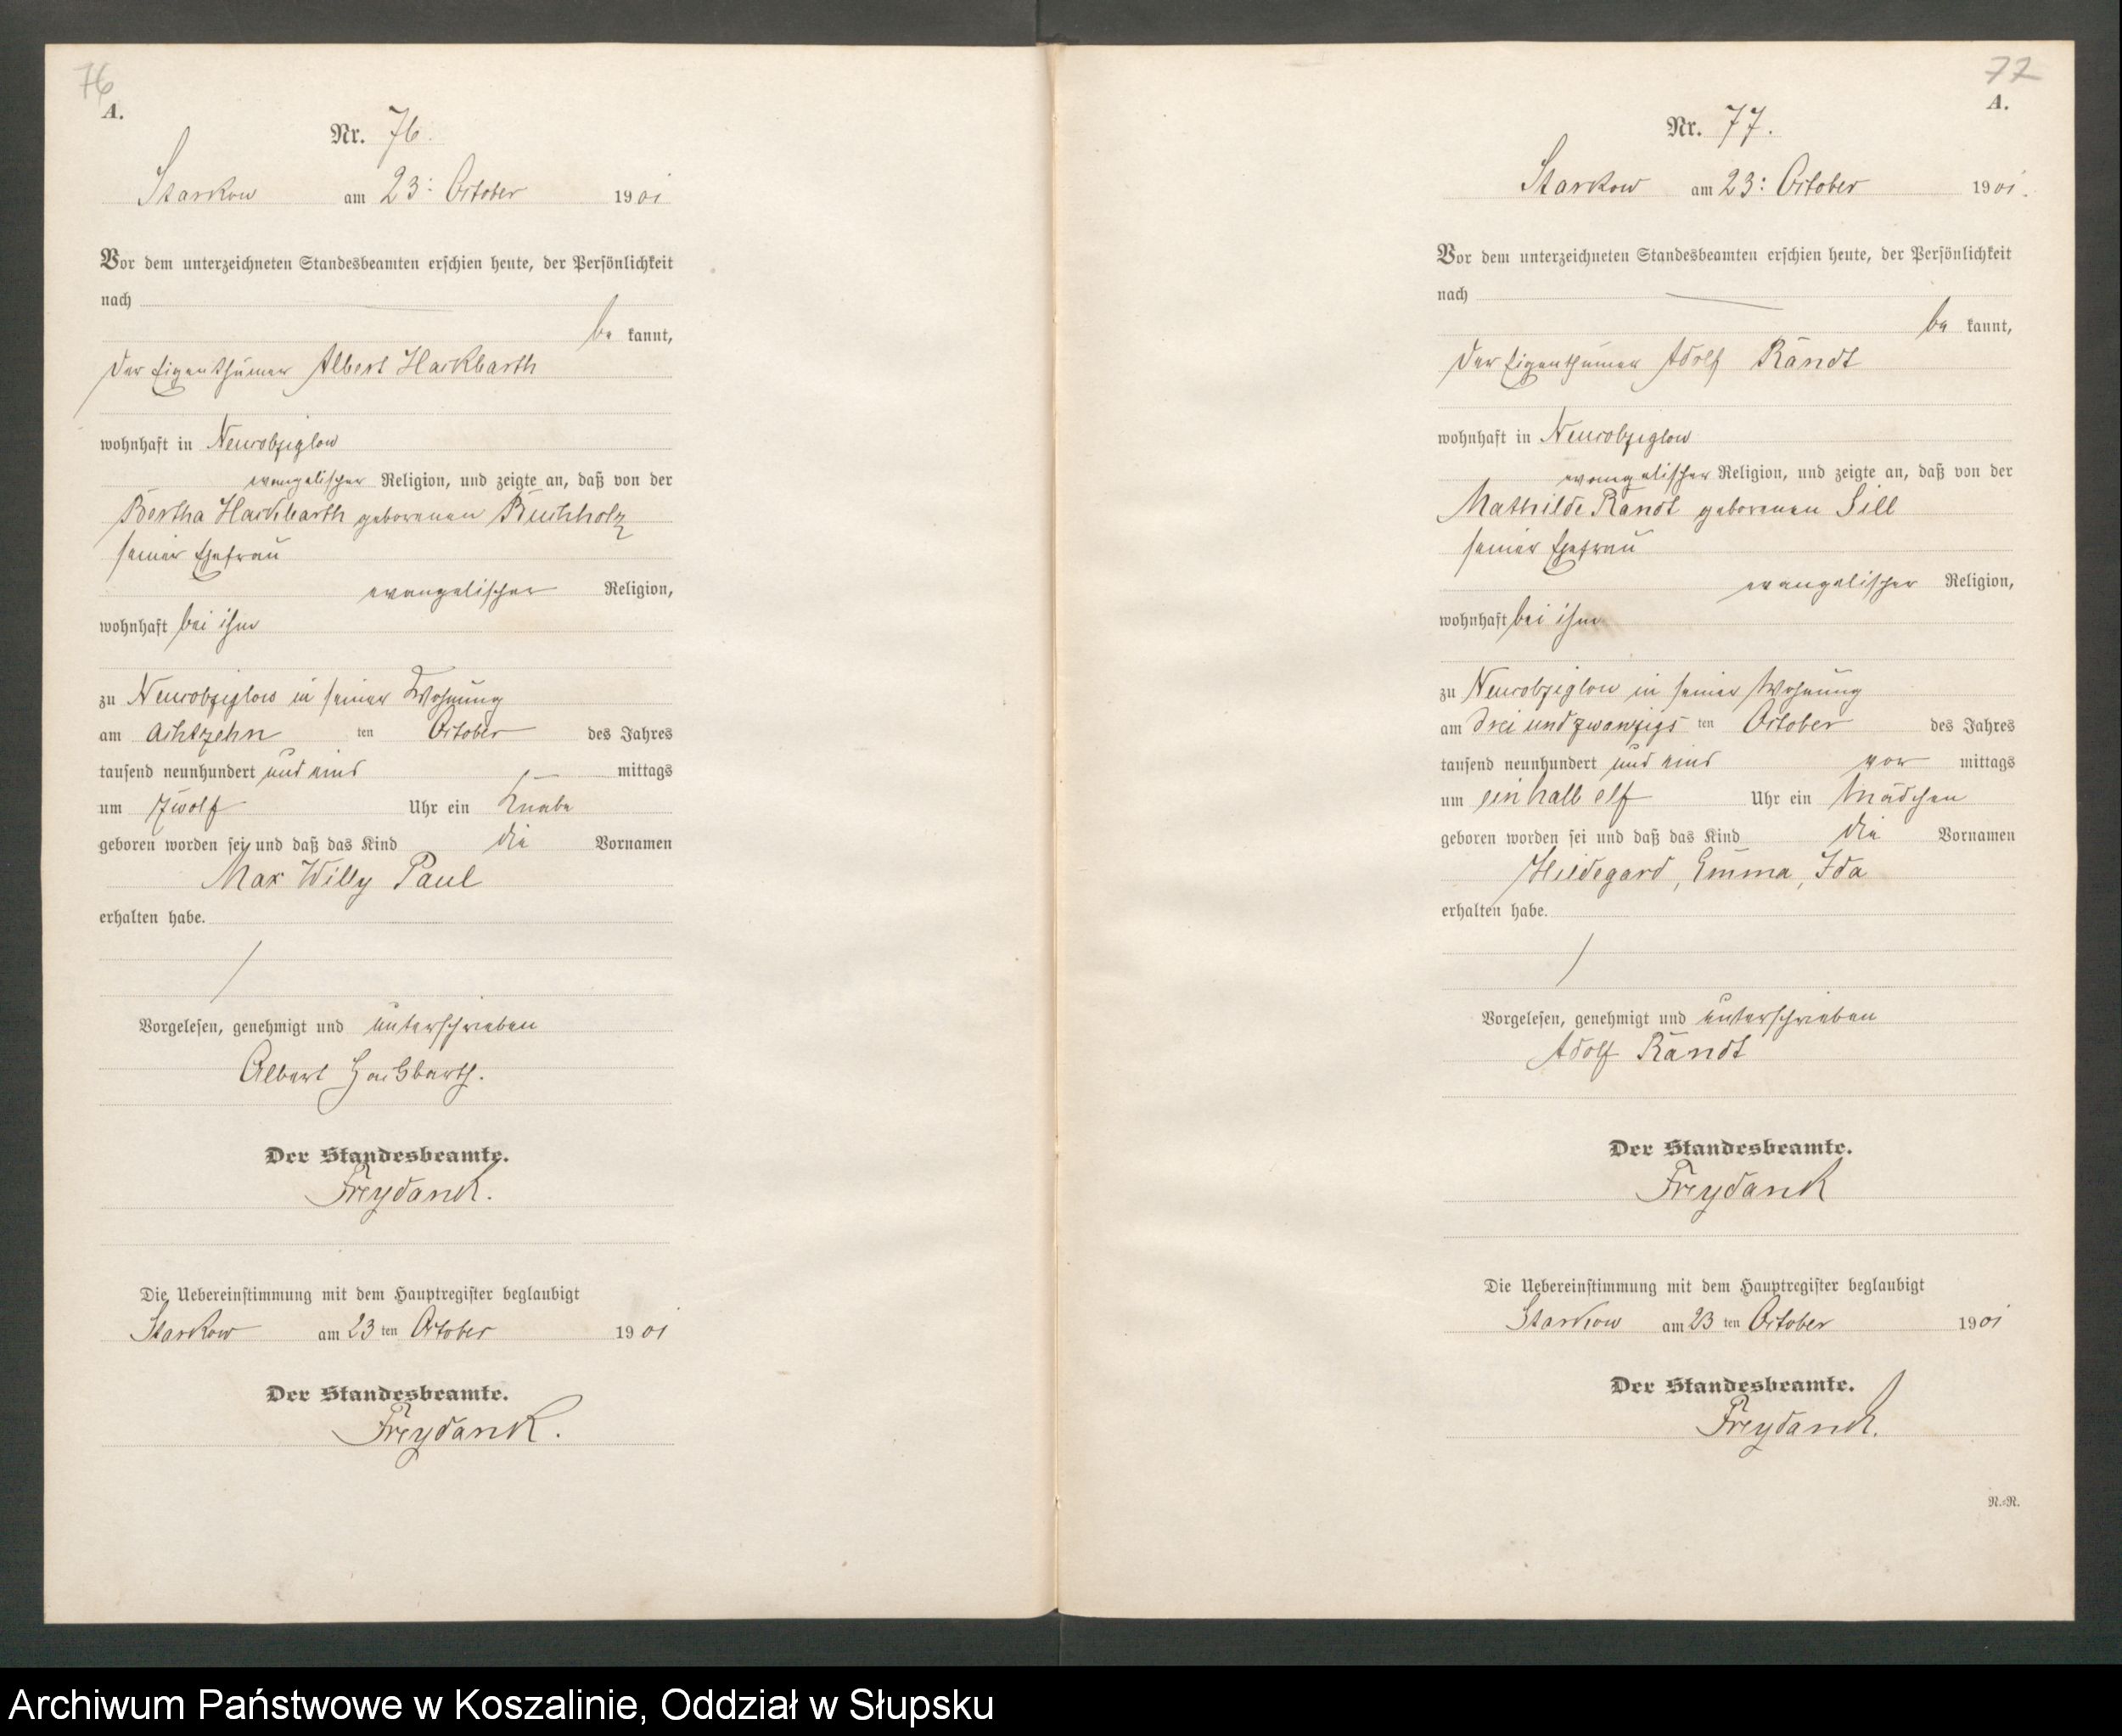 76
A.
Nr. 76.
Starkow am 23: October 1901
Vor dem unterzeichneten Standesbeamten erschien heute, der Persönlichkeit
nach
be kannt,
der Eigenthümer Albert Hackbarth
wohnhaft in Neurobziglow
evangelischer Religion, und zeigte an, daß von der
Bertha Hackbarth geborenen Buchholz
seiner Ehefrau
evangelischer Religion,
wohnhaft bei ihm
zu Neurobziglow in seiner Wohnung
am achtzehn ten October des Jahres
tausend neunhundert und eins mittags
um zwölf Uhr ein Knabe
geboren worden sei und daß das Kind die Vornamen
Max Willy Paul
erhalten habe.
Vorgelesen, genehmigt und unterschrieben
Albert Hackbarth.
Der Standesbeamte.
Freydank.
Die Uebereinstimmung mit dem Hauptregister beglaubigt
Starkow am 23 ten October 1901
Der Standesbeamte.
Freydank.
77
A.
Nr. 77.
Starkow am 23: October 1901.
Vor dem unterzeichneten Standesbeamten erschien heute, der Persönlichkeit
nach
be kannt,
der Eigenthümer Adolf Randt
wohnhaft in Neurobziglow
evangelischer Religion, und zeigte an, daß von der
Mathilde Randt geborenen Sill
seiner Ehefrau
evangelischer Religion,
wohnhaft bei ihm
zu Neurobziglow in seiner Wohnung
am drei und zwanzigs ten October des Jahres
tausend neunhundert und eins vor mittags
um ein halb elf Uhr ein Mädchen
geboren worden sei und daß das Kind die Vornamen
Hildegard, Emma, Ida
erhalten habe.
Vorgelesen, genehmigt und unterschrieben
Adolf Randt
Der Standesbeamte.
Freydank
Die Uebereinstimmung mit dem Hauptregister beglaubigt
Starkow am 23 ten October 1901
Der Standesbeamte.
Freydank.
N.=N.
Archiwum Państwowe w Koszalinie, Oddział w Słupsku